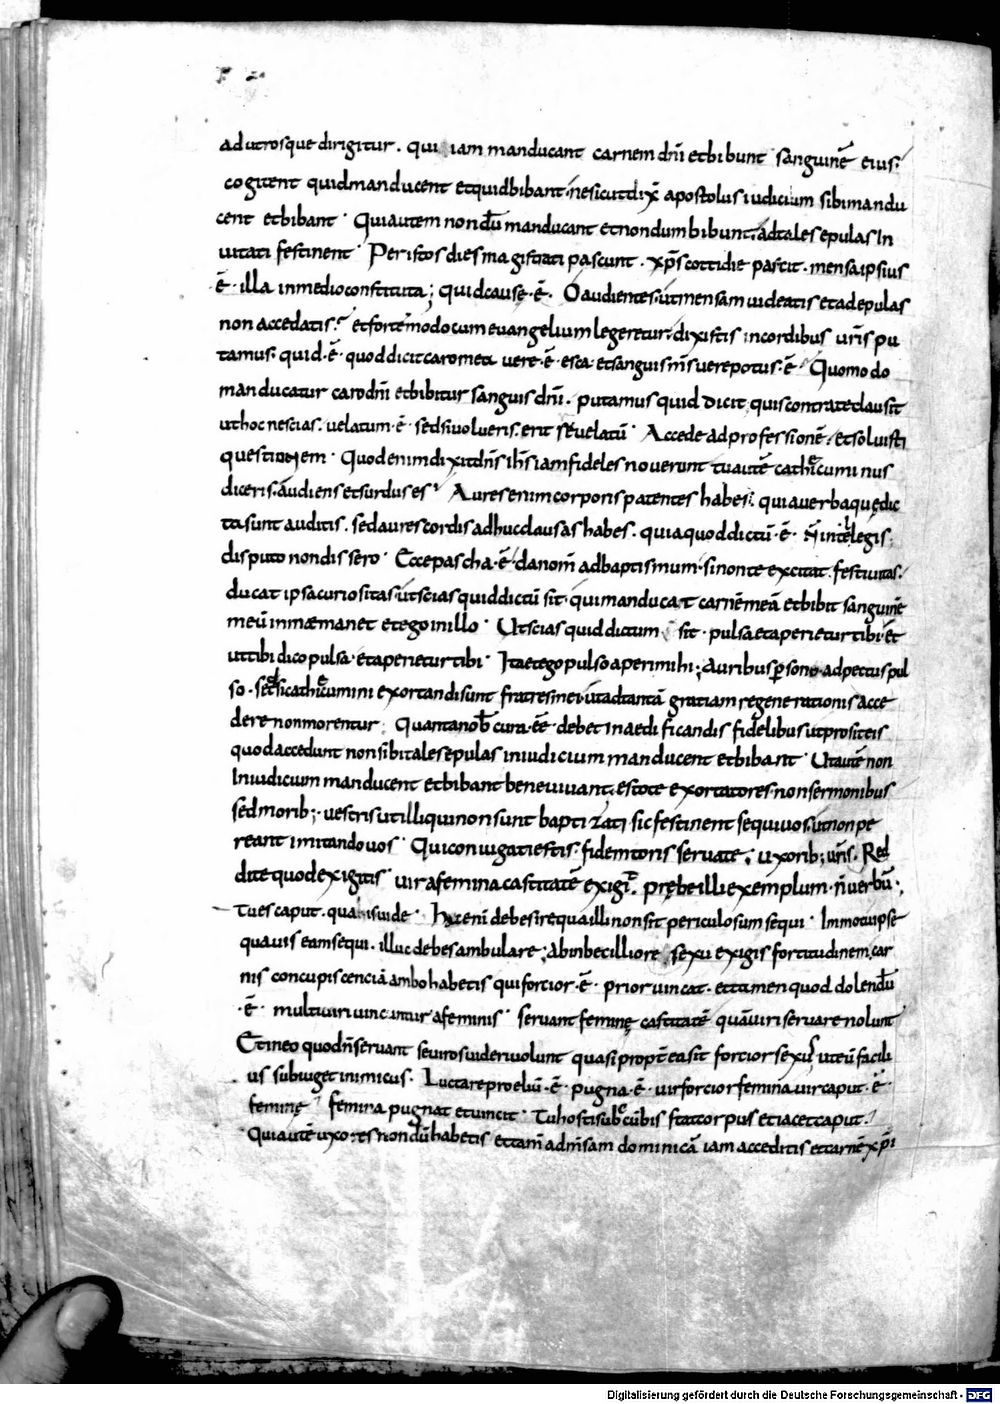 ad utrosque dirigitur. qui iam manducant carnem dn̄i et bibunt sanguinē eius:
cogitent quid manducent et quid bibant. ne sicut dix̄ apostolus iudicium sibi mandu
cent et bibant. Qui autem nondū manducant et nondum bibunt, ad tales epulas In
uitati festinent. Per istos dies magistrati pascunt. xp̄s cottidie pascit. mensa ipsius
.ē. illa in medio constituta; quid cause .ē. O audientes. ut mensam uideatis et ad epulas
non accedatis? et forte modo cum euangelium legeretur. dixistis in cordibus uris pu
tamus. quid .ē. quod dicit caro mea uere .ē. esca. et sanguis m̄s uere potus .ē. Quomodo
manducatur caro dn̄i et bibitur sanguis dn̄i. putamus quid dicit, quis contra te clausit
ut hoc nescias. uelatum .ē. sed si uolueris. erit reuelatū. Accede ad professionē. et soluisti
questionem. Quod enim dixit dn̄s ih̄s iam fideles nouerunt tu autē cathecuminus
diceris. audiens et surdus es. Aures enim corporis patentes habes; quia uerba quę dic
ta sunt auditis. sed aures cordis adhuc clausas habes. quia quod dictū .ē. n̄ intellegis.
disputo non dissero. Ecce pascha .ē. da nom̄ ad baptismum. si non te excitat festiuitas.
ducat ipsa curiositas. ut scias quid dictū sit. qui manducat carnē meā et bibit sanguinē
meū in me manet et ego in illo. Ut scias quid dictum sit. pulsa et aperietur tibi. et
ut tibi dico pulsa. et aperietur tibi. Ita et ego pulso aperi mihi; auribus p̱ sono. ad pectus pul
so. sed si cathecumini exortandi sunt fratres mei. ut ad tantā gratiam regenerationis acce
dere non morentur. Quanta nob̄ cura .ēē. debet In aedificandis fidelibus ut prosit eis
quod accedunt non sibi tales epulas in iudicium manducent et bibant. Ut autē non
In iudicium manducent et bibant bene uiuant. estote exortatores. non sermonibus
sed morib; uestris ut illi qui non sunt baptizati sic festinent sequi uos. ut non pe
reant imitando uos. Qui coniugati estis. fidem toris seruate; uxorib; ur̄is. Red
dite quod exigitis. uir a femina castitatē exigis. prębe illi exemplum. n̄ uerbū;
Tu es caput. qua is uide. Hac enī debes ire qua illi non sit periculosum sequi. Immo tu ipse
qua uis eam sequi. illuc debes ambulare; ab inbecilliore sexu exigis fortitudinem. car
nis concupiscenciā ambo habetis qui forcior .ē. prior uincat. et tamen quod dolendū
.ē. multi uiri uincuntur a feminis. seruant feminę castitatē quā uiri seruare nolunt
Et in eo quod n̄ seruant se uiros uideri uolunt quasi propt̄ea sit forcior sexus ut eū facili
us subiuget inimicus. Luctare proeliū .ē. pugna .ē. uir forcior femina. uir caput .ē.
feminę. femina pugnat et uincit. Tu hosti subcūbis stat corpus et iacet caput.
Qui autē uxores nondū habetis et tam̄ ad m̄sam dominicā iam acceditis et carnē xp̄i